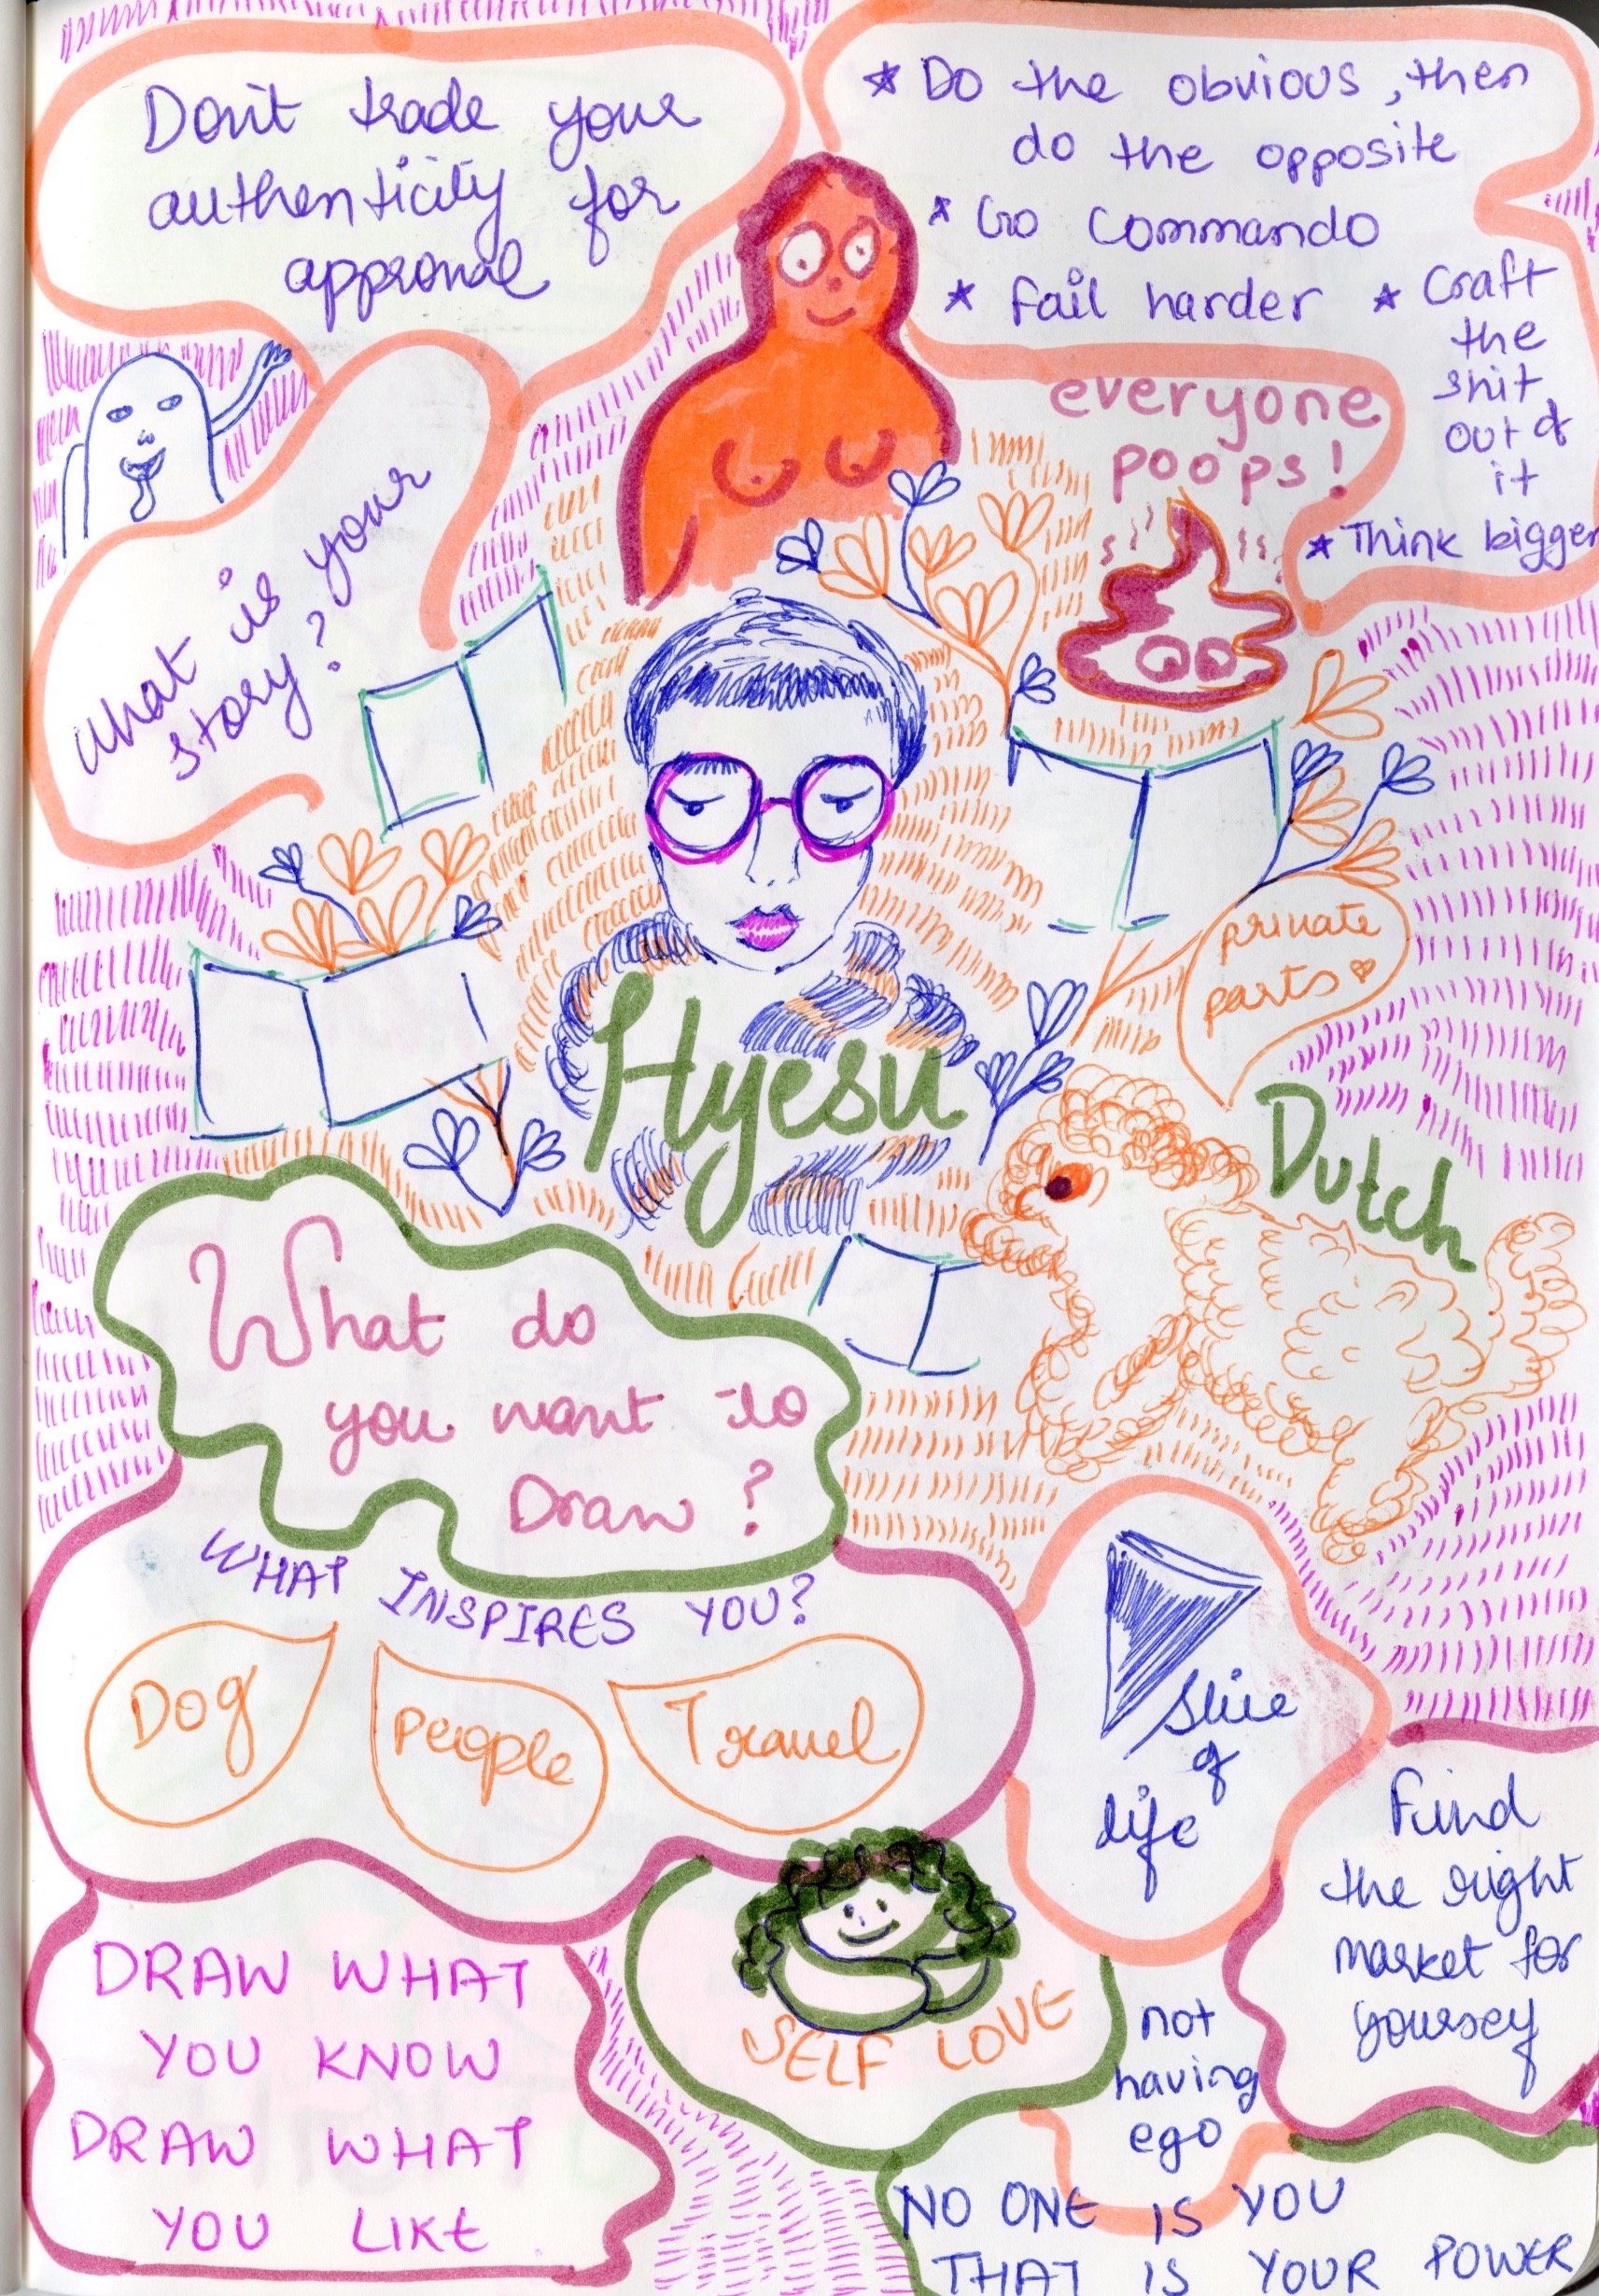 Don't trade your
authenticity for
approval
* Do the obvious, then
do the opposite
* Go commando
* Fail harder
* Craft
the
shit
out of
it
* Think bigger
everyone
poops!
What is your
story?
private
parts
Hyesu
Dutch
What do
you want to
Draw?
WHAT INSPIRES YOU?
Dog
People
Travel
Slice
of
life
Find
the right
market for
yourself
DRAW WHAT
YOU KNOW
DRAW WHAT
YOU LIKE
SELF LOVE
not
having
ego
NO ONE IS YOU
THAT IS YOUR POWER